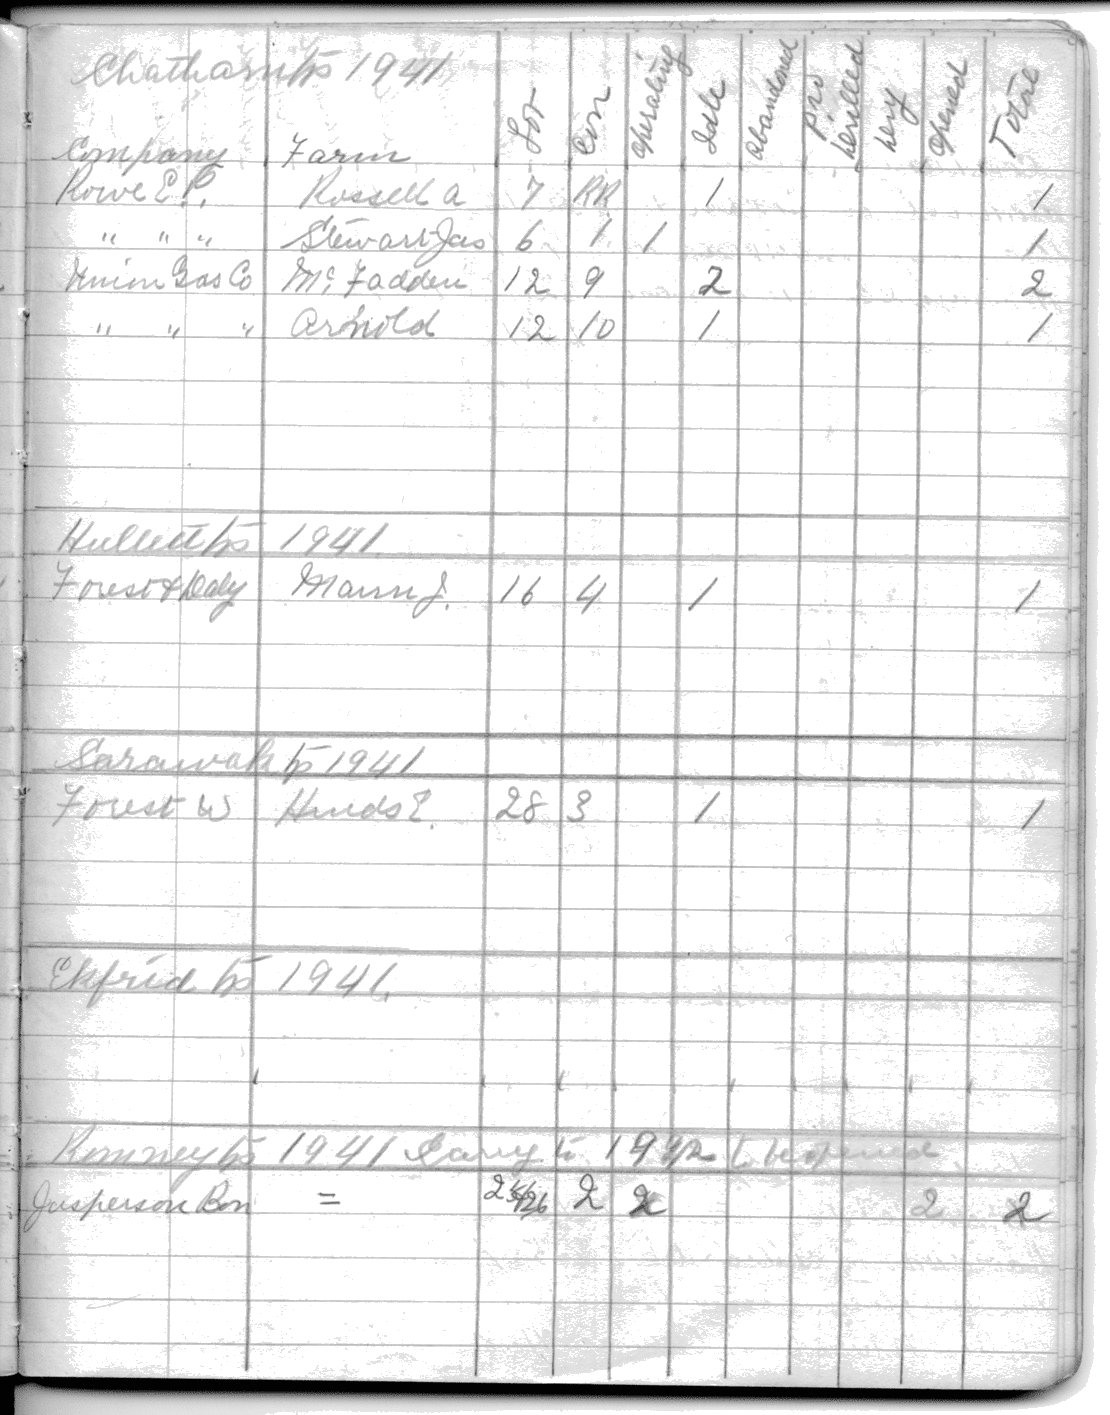 Chatham tp 1941
Company Farm Lot Con Operating Idle Abandoned Pro Drilled Dry Opened Total
Rowe E.P. Russell A 7 RR 1 1
" " " Stewart Jas 6 1 1 1
Union Gas Co Mc Fadden 12 9 2 2
" " " Arnold 12 10 1 1
Hullett tp 1941
Forest & Daly Mann J. 16 4 1 1
Sarawak tp 1941
Forest W Hinds E. 28 3 1 1
Ekfrid tp 1941
Romney tp 1941 Carry to 1942
Jasperson Bon = 2 2 2 2